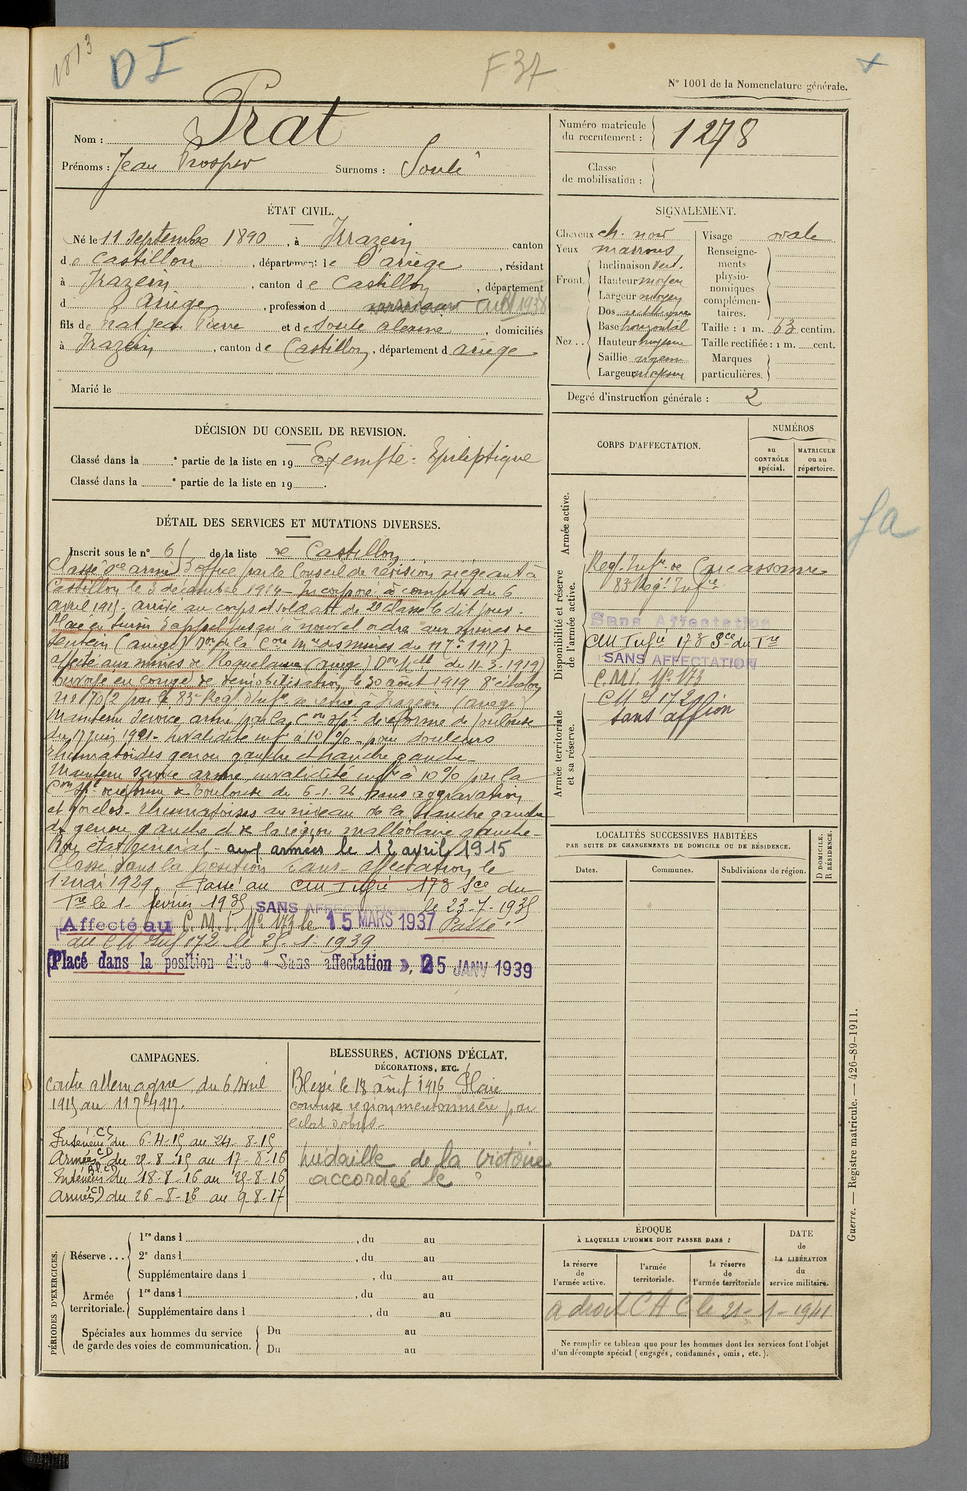 1813
DI
F37
N° 1001 de la Nomenclature générale.
Nom : Prat
Prénoms : Jean Prosper Surnoms : Soulé
Numéro matricule du recrutement : 1278
Classe de mobilisation :
ÉTAT CIVIL.
Né le 11 Septembre 1890, à Irazein canton
de Castillon, département de l'Ariège, résidant
à Irazein, canton de Castillon, département
d Ariège, profession d
fils de Prat Jean Pierre et de Soulé, domiciliés
à Irazein, canton de Castillon, département d Ariège
Marié le
SIGNALEMENT.
Cheveux ch. noir
Yeux marrons
Front Inclinaison vert.
Hauteur moyen
Largeur moyen
Nez Dos
Base horizontal
Hauteur moyenne
Saillie moyenne
Largeur moyenne
Visage ovale
Renseignements physionomiques complémentaires.
Taille : 1 m. 63 centim.
Taille rectifiée : 1 m. cent.
Marques particulières.
Degré d'instruction générale : 2
DÉCISION DU CONSEIL DE REVISION.
Classé dans la ° partie de la liste en 19 Exempté - Epileptique
Classé dans la ° partie de la liste en 19 .
DÉTAIL DES SERVICES ET MUTATIONS DIVERSES.
Inscrit sous le n° 61 de la liste de Castillon
Classé Sce armé d'office par le Conseil de révision siégeant à
Castillon le 3 décembre 1914 - incorporé à compter du 6
avril 1915. arrivé au corps et soldat de 2e classe le dit jour.
Placé en sursis d'appel jusqu'à nouvel ordre aux mines de
Sentein (Ariège)
affecté aux mines de Roquelaure (Ariège) du 11.3.1919)
Envoyé en congé de démobilisation le 30 août 1919 8e échelon
par le 83e Reg. d'Infie se retire à Irazein (Ariège)
Maintenu service armé par la Con spéle de réforme de Toulouse
du 17 juin 1921 - invalidité infre à 10% pour douleurs
rhumatoïdes genou gauche et hanche gauche -
Maintenu service armé invalidité infre à 10% par la
Con sple de réforme de Toulouse du 6-1-26 sans aggravation
Rhumatoïdes au niveau de la hanche gauche
du genou gauche et de la région malléolaire gauche -
Bon état général - aux armées le 12 avril 1915
Classé dans la position sans affectation le
1 mai 1929. Passé au CM Infie 178 Sce du
Tre le 1 février 1935 SANS AFFECTATION le 23-7-1935
Affecté au C.M.I. N° 173 le 15 MARS 1937 Passé
au CM Inf 172 le 25-1-1939
Placé dans la position dite « Sans affectation », 25 JANV 1939
CORPS D'AFFECTATION.
NUMÉROS
au CONTRÔLE spécial.
MATRICULE ou au répertoire.
Armée active.
Disponibilité et réserve de l'armée active.
Reg. Infie de Carcassonne
83 Reg. Infie
Sans Affectation
CM Infie 178 Sce du Tre
SANS AFFECTATION
C.M.I. N° 173
CM I 172
Sans affion
Armée territoriale et sa réserve.
Ja
LOCALITÉS SUCCESSIVES HABITÉES
PAR SUITE DE CHANGEMENTS DE DOMICILE OU DE RÉSIDENCE.
Dates.
Communes.
Subdivisions de région.
D DOMICILE.
R RÉSIDENCE.
CAMPAGNES.
Contre allemagne du 6 Avril
1915 au 11 7bre 1917.
Intérieur CS du 6-4-15 au 21-8-15
Armées CD du 22-8-15 au 17-8-16
Intérieur du 18-8-16 au 25-8-16
Armées CD du 26-8-16 au 9-8-17
BLESSURES, ACTIONS D'ÉCLAT,
DÉCORATIONS, ETC.
Blessé le 18 août 1916 Plaie
contuse région mentonnière par
éclat d'obus -
Médaille de la Victoire
accordée le
PÉRIODES D'EXERCICES.
Réserve ... 1re dans l , du au
2e dans l , du au
Supplémentaire dans l , du au
Armée territoriale. 1re dans l , du au
Supplémentaire dans l , du au
Spéciales aux hommes du service de garde des voies de communication. Du au
Du au
ÉPOQUE
À LAQUELLE L'HOMME DOIT PASSER DANS :
la réserve de l'armée active.
l'armée territoriale.
la réserve de l'armée territoriale
DATE de LA LIBÉRATION du service militaire.
a droit C A C le 21-1-1941
Ne remplir ce tableau que pour les hommes dont les services font l'objet
d'un décompte spécial (engagés, condamnés, omis, etc.).
Guerre. — Registre matricule. — 426-89-1911.